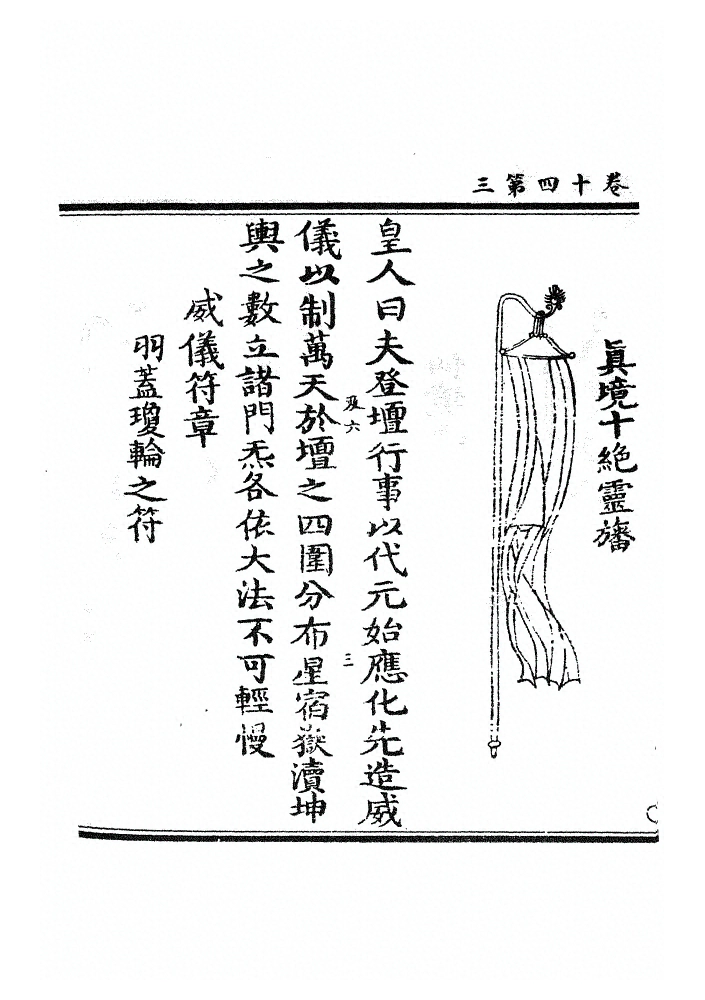 卷十四第三
眞境十絕靈旛
皇人曰夫登壇行事以代元始應化先造威
儀以制萬天於壇之四圍分布星宿嶽瀆坤
輿之數立諸門炁各依大法不可輕慢
威儀符章
羽蓋瓊輪之符
及六
三